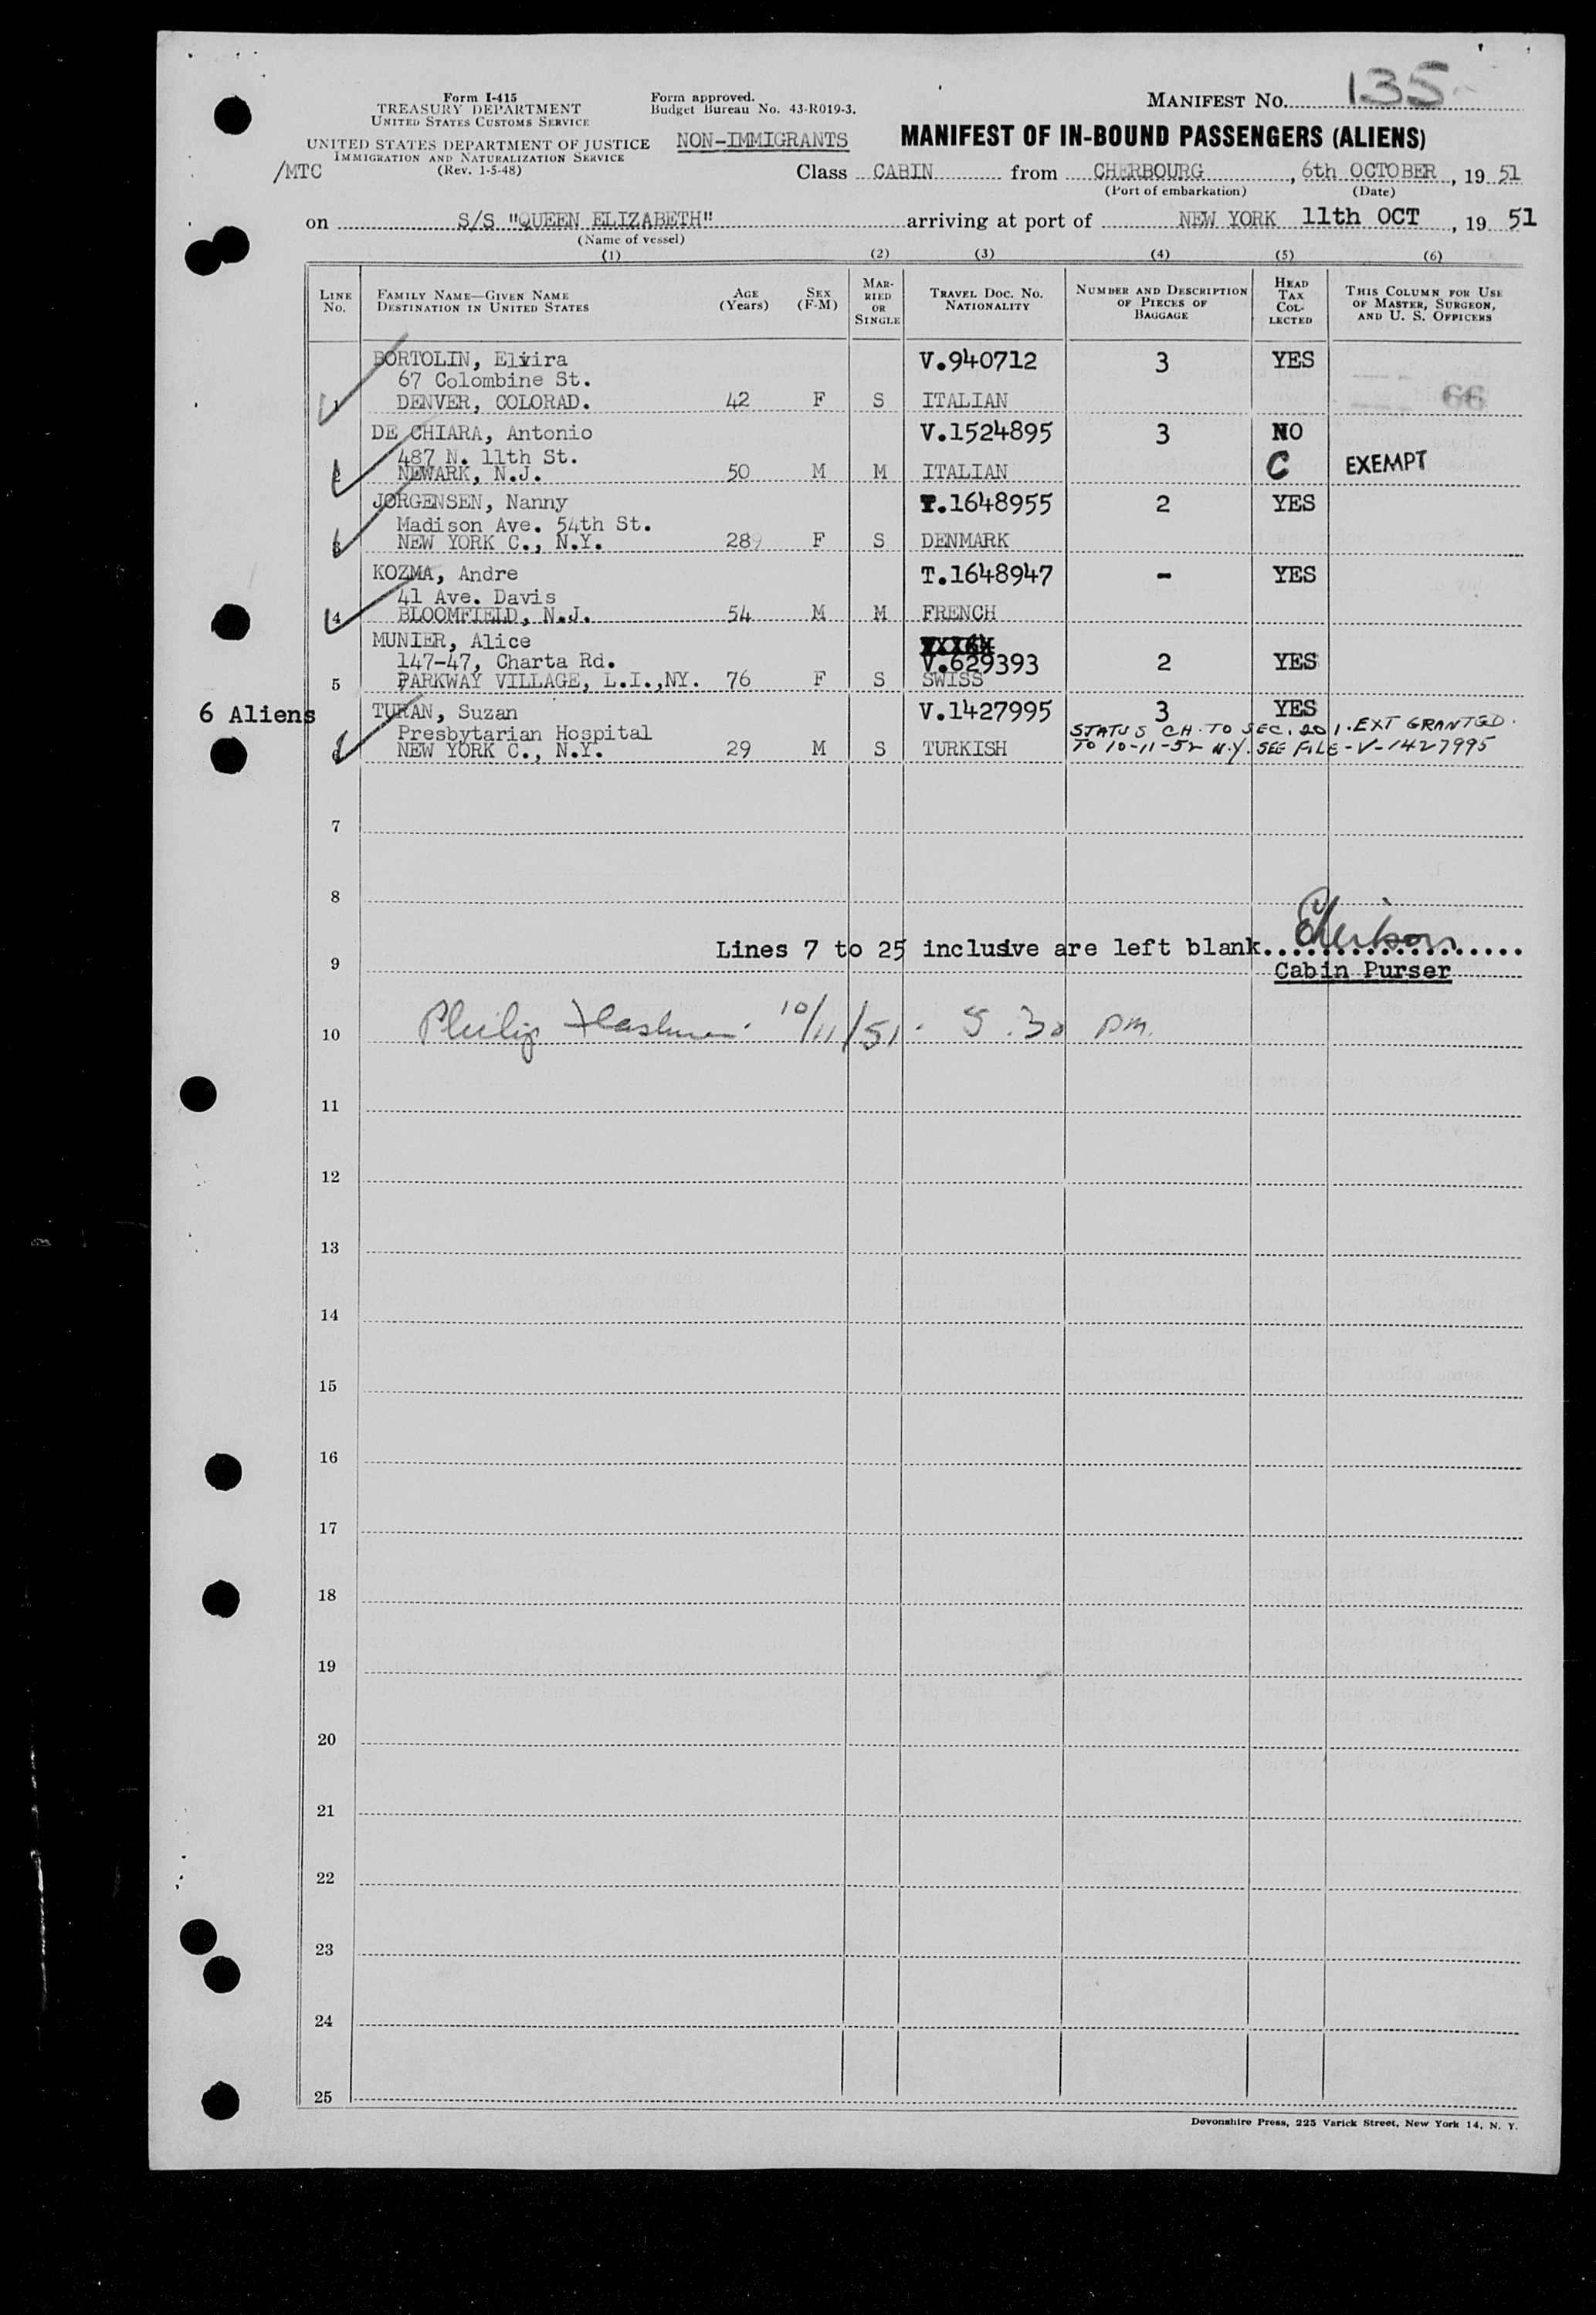 MANIFEST NO. 135
Form I-415
TREASURY DEPARTMENT
UNITED STATES CUSTOMS SERVICE
UNITED STATES DEPARTMENT OF JUSTICE
IMMIGRATION AND NATURALIZATION SERVICE
(Rev. 1-5-48)
/MTC
Form approved.
Budget Bureau No. 43-R019-3.
NON-IMMIGRANTS
MANIFEST OF IN-BOUND PASSENGERS (ALIENS)
Class CABIN from CHERBOURG, 6th OCTOBER, 19 51
(Port of embarkation) (Date)
on S/S "QUEEN ELIZABETH" arriving at port of NEW YORK 11th OCT, 19 51
(Name of vessel)
(1) (2) (3) (4) (5) (6)
LINE NO. FAMILY NAME—GIVEN NAME DESTINATION IN UNITED STATES AGE (Years) SEX (F-M) MARRIED OR SINGLE TRAVEL DOC. NO. NATIONALITY NUMBER AND DESCRIPTION OF PIECES OF BAGGAGE HEAD TAX COLLECTED THIS COLUMN FOR USE OF MASTER, SURGEON, AND U. S. OFFICERS
BORTOLIN, Elvira V.940712 3 YES
67 Colombine St.
1 DENVER, COLORAD. 42 F S ITALIAN 66
DE CHIARA, Antonio V.1524895 3 NO
487 N. 11th St. C EXEMPT
2 NEWARK, N.J. 50 M M ITALIAN
JORGENSEN, Nanny T.1648955 2 YES
Madison Ave. 54th St.
3 NEW YORK C., N.Y. 289 F S DENMARK
KOZMA, Andre T.1648947 - YES
41 Ave. Davis
4 BLOOMFIELD, N.J. 54 M M FRENCH
MUNIER, Alice
147-47, Charta Rd. V.629393 2 YES
5 PARKWAY VILLAGE, L.I.,NY. 76 F S SWISS
6 Aliens TURAN, Suzan V.1427995 3 YES
Presbytarian Hospital STATUS CH. TO SEC. 201. EXT GRANTED.
6 NEW YORK C., N.Y. 29 M S TURKISH TO 10-11-52 N.Y. SEE FILE-V-1427995
7
8
Lines 7 to 25 inclusive are left blank
9
Cabin Purser
10 Philip 10/11/51. 5.30 pm.
11
12
13
14
15
16
17
18
19
20
21
22
23
24
25
Devonshire Press, 225 Varick Street, New York 14, N. Y.